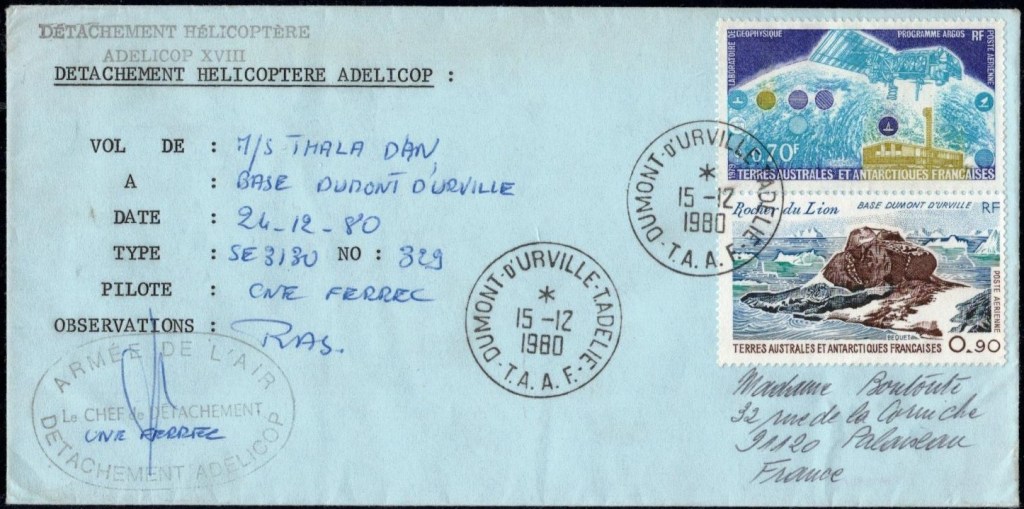 DÉTACHEMENT HÉLICOPTÈRE
ADELICOP XVIII
DETACHEMENT HELICOPTERE ADELICOP :
VOL DE : M/S THALA DAN
A : BASE DUMONT D'URVILLE
DATE : 24-12-80
TYPE : SE3130 NO : 329
PILOTE : CNE FERREC
OBSERVATIONS : RAS.
ARMÉE DE L'AIR
Le CHEF de DÉTACHEMENT
CNE FERREC
DETACHEMENT ADÉLICOP
DUMONT-D'URVILLE-T.ADELIE
*
15-12
1980
T.A.A.F.
DUMONT-D'URVILLE-T.ADELIE
*
15-12
1980
T.A.A.F.
LABORATOIRE DE GEOPHYSIQUE
PROGRAMME ARGOS RF
POSTE AÉRIENNE
1980
.70F
TERRES AUSTRALES ET ANTARCTIQUES FRANÇAISES
Rocher du Lion BASE DUMONT D'URVILLE RF
POSTE AÉRIENNE
BEQUET
TERRES AUSTRALES ET ANTARCTIQUES FRANÇAISES 0.90
Madame Boutonte
32 rue de la Corniche
91120 Palaiseau
France